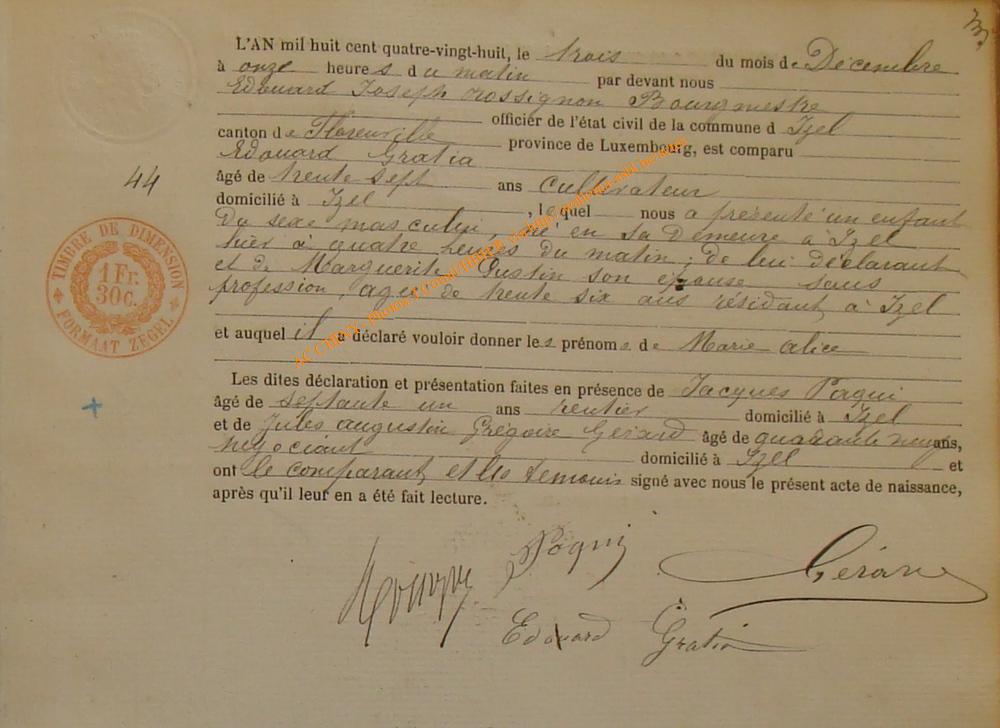 L'AN mil huit cent quatre-vingt-huit, le trois du mois de Décembre
à onze heures du matin par devant nous
Edouard Joseph Rossignon Bourgmestre
officier de l'état civil de la commune d Izel
canton de Florenville province de Luxembourg, est comparu
Edouard Gratia
44
âgé de trente sept ans cultivateur
domicilié à Izel, lequel nous a présenté un enfant
Du sexe masculin, né en sa demeure à Izel
hier à quatre heures du matin, de lui déclarant
et de Marguerite Pustin son épouse sans
profession, agée de trente six ans résidant à Izel
et auquel il a déclaré vouloir donner les prénoms de Marie alice
Les dites déclaration et présentation faites en présence de Jacques Paqui
âgé de septante un ans rentier domicilié à Izel
et de Jules augustin Grégoire Gérard âgé de quarante neuf ans,
négociant domicilié à Izel et
ont le comparant et les temoins signé avec nous le présent acte de naissance,
après qu'il leur en a été fait lecture.
TIMBRE DE DIMENSION
1 Fr.
30c.
FORMAAT ZEGEL
Paqui
Gérard
Edouard Gratia